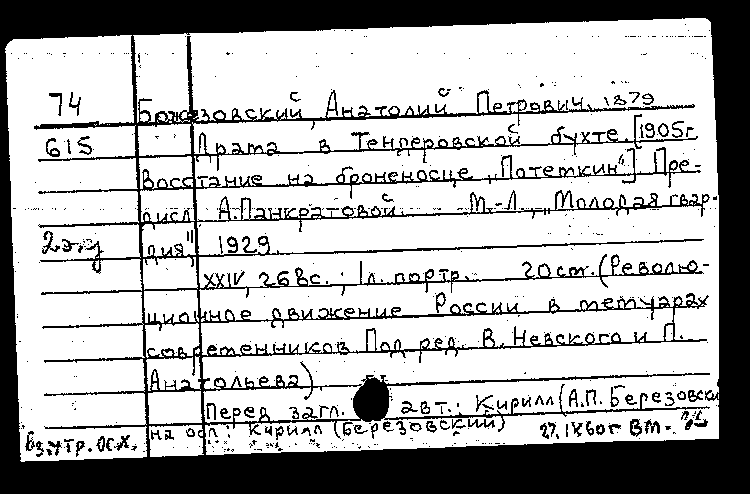 74 Божезовский, Анатолий Петрович, 1879
615 Драма в Тендеровской бухте. [1905г.
Восстание на броненосце „Потемкин".] Пре-
дисл. А. Панкратовой. М.-Л., „Молодая гвар-
2 экз дия", 1929.
XXIV, 268с.; 1л. портр. 20см. (Револю-
ционное движение России в мемуарах
современников. Под ред. В. Невского и П.
Анатольева).
Перед загл. авт.: Кирилл (А.П. Березовски
Вз. утр. ос.х. на обл.: Кирилл (Березовский) 27.IX60г ВМ.